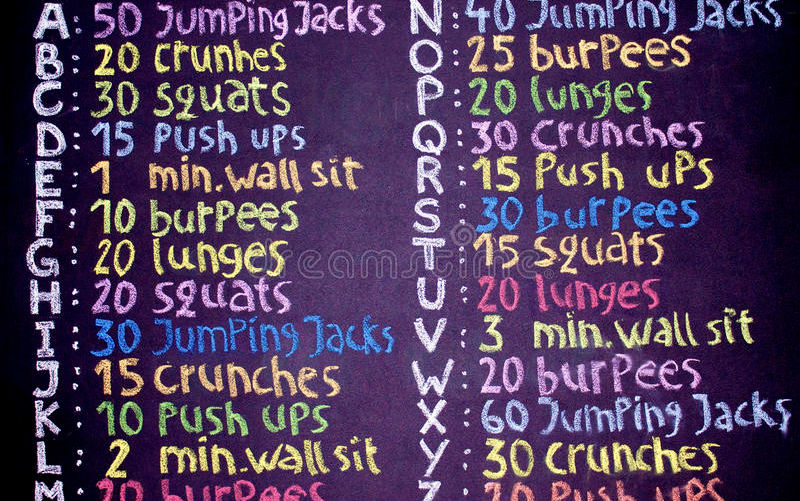 A: 50 Jumping Jacks
B: 20 crunhes
C: 30 squats
D: 15 Push ups
E: 1 min. wall sit
F: 10 burpees
G: 20 lunges
H: 20 squats
I: 30 Jumping Jacks
J: 15 crunches
K: 10 Push ups
L: 2 min. wall sit
M: 20 burpees
N: 40 Jumping Jacks
O: 25 burpees
P: 20 lunges
Q: 30 crunches
R: 15 Push ups
S: 30 burpees
T: 15 squats
U: 20 lunges
V: 3 min. wall sit
W: 20 burpees
X: 60 Jumping Jacks
Y: 30 crunches
Z: 20 Push ups
dreamstime.com